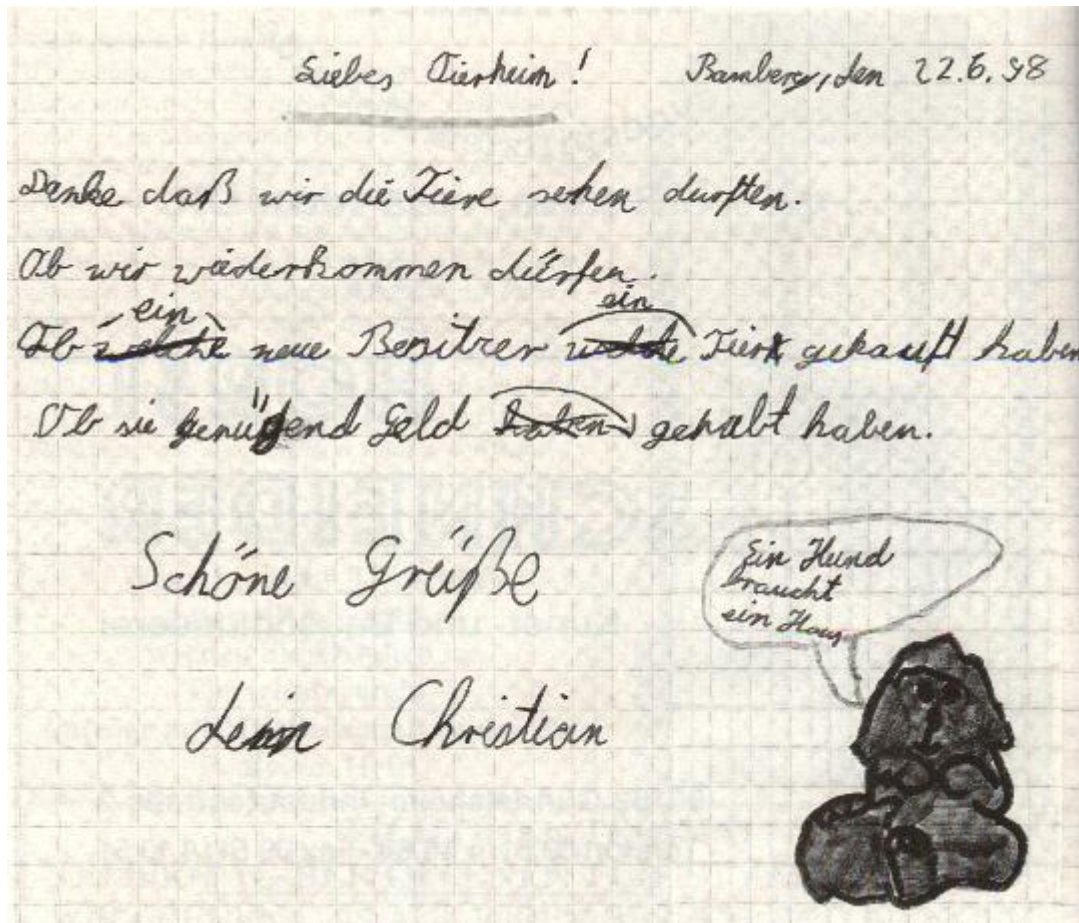 Liebes Tierheim! Bamberg, den 22.6.98
Danke daß wir die Tiere sehen durften.
Ob wir wiederkommen dürfen.
ein ein
Ob welche neue Besitzer welche Tier gekauft haben
Ob sie genügend Geld haben gehabt haben.
Schöne Grüße
dein Christian
Ein Hund
braucht
ein Haus